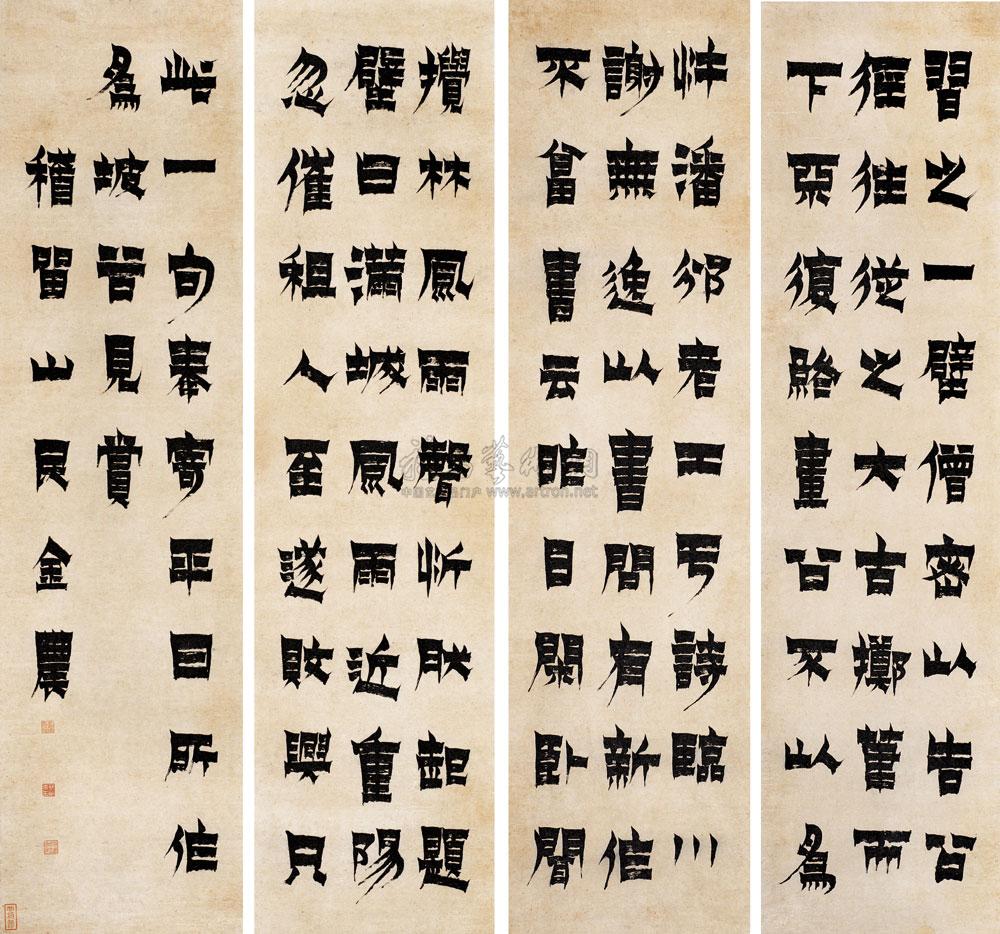 習之一壁僧密以告公
徑往從之大吉擲筆而
下亟復畫公不以為
忤潘邠老工于詩臨川
謝無逸以書問有新作
不畣書云昨日閑臥聞
攪林風雨聲忻然起題
壁曰滿城風雨近重陽
忽催租人至遂敗興只
此一句奉寄平日所作
為坡谷見賞
稽留山民金農
www.artron.net